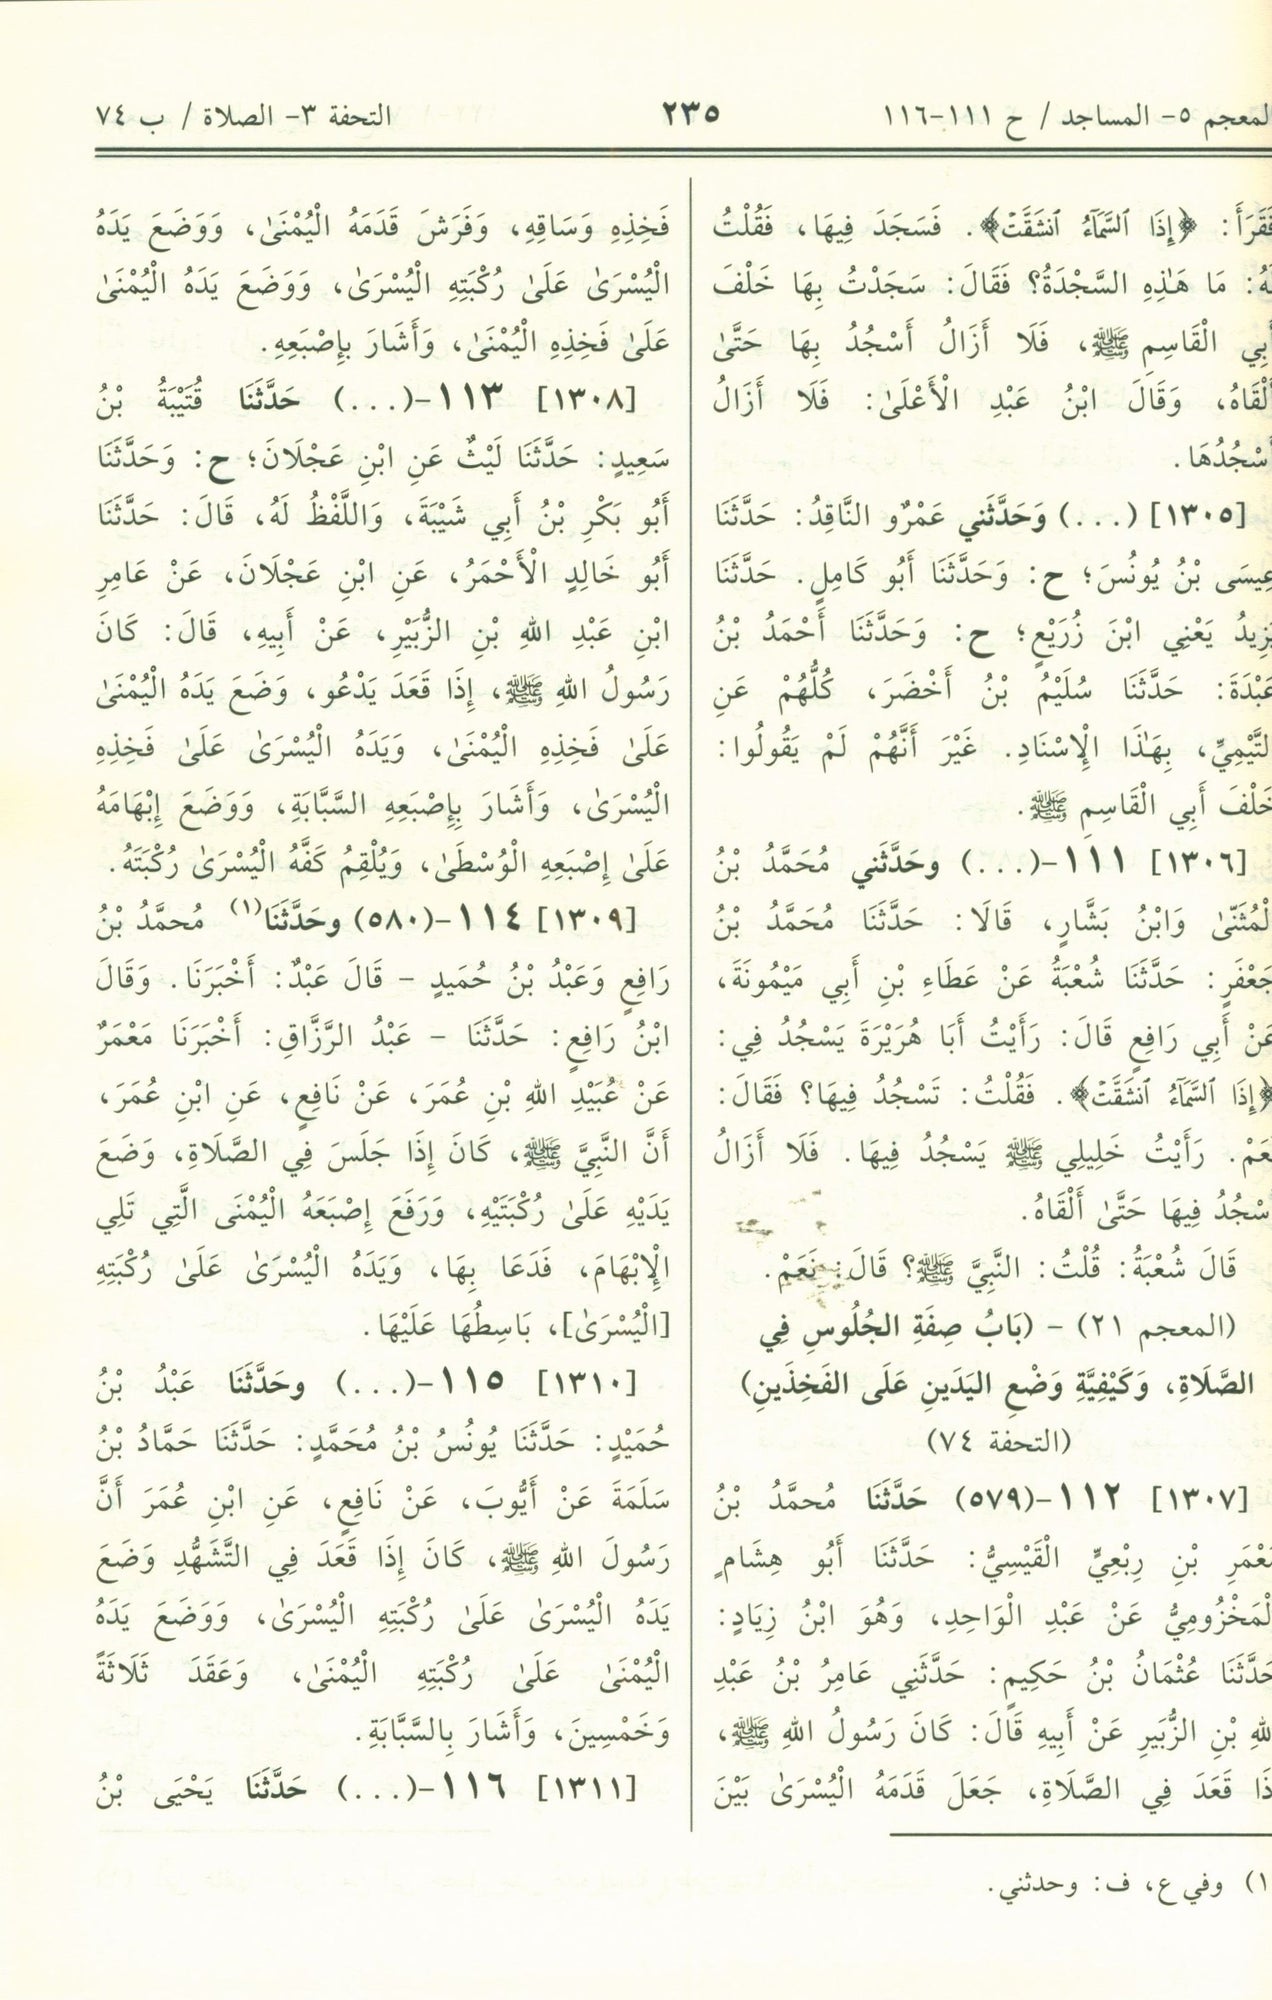 المعجم ٥- المساجد / ح ١١١-١١٦
٢٣٥
التحفة ٣- الصلاة / ب ٧٤
فَقَرَأَ: ﴿إِذَا ٱلسَّمَآءُ ٱنشَقَّتْ﴾. فَسَجَدَ فِيهَا، فَقُلْتُ
لَهُ: مَا هَٰذِهِ السَّجْدَةُ؟ فَقَالَ: سَجَدْتُ بِهَا خَلْفَ
أَبِي الْقَاسِمِ ﷺ، فَلَا أَزَالُ أَسْجُدُ بِهَا حَتَّىٰ
أَلْقَاهُ، وَقَالَ ابْنُ عَبْدِ الْأَعْلَىٰ: فَلَا أَزَالُ
أَسْجُدُهَا.
[١٣٠٥] (...) وَحَدَّثَني عَمْرٌو النَّاقِدُ: حَدَّثَنَا
عِيسَى بْنُ يُونُسَ؛ ح: وَحَدَّثَنَا أَبُو كَامِلٍ. حَدَّثَنَا
يَزِيدُ يَعْنِي ابْنَ زُرَيْعٍ؛ ح: وَحَدَّثَنَا أَحْمَدُ بْنُ
عَبْدَةَ: حَدَّثَنَا سُلَيْمُ بْنُ أَخْضَرَ، كُلُّهُمْ عَنِ
التَّيْمِيِّ، بِهَٰذَا الْإِسْنَادِ. غَيْرَ أَنَّهُمْ لَمْ يَقُولُوا:
خَلْفَ أَبِي الْقَاسِمِ ﷺ.
[١٣٠٦] ١١١-(...) وحَدَّثَني مُحَمَّدُ بْنُ
الْمُثَنّىٰ وَابْنُ بَشَّارٍ، قَالَا: حَدَّثَنَا مُحَمَّدُ بْنُ
جَعْفَرٍ: حَدَّثَنَا شُعْبَةُ عَنْ عَطَاءِ بْنِ أَبِي مَيْمُونَةَ،
عَنْ أَبِي رَافِعٍ قَالَ: رَأَيْتُ أَبَا هُرَيْرَةَ يَسْجُدُ فِي:
﴿إِذَا ٱلسَّمَآءُ ٱنشَقَّتْ﴾. فَقُلْتُ: تَسْجُدُ فِيهَا؟ فَقَالَ:
نَعَمْ. رَأَيْتُ خَلِيلِي ﷺ يَسْجُدُ فِيهَا. فَلَا أَزَالُ
أَسْجُدُ فِيهَا حَتَّىٰ أَلْقَاهُ.
قَالَ شُعْبَةُ: قُلْتُ: النَّبِيَّ ﷺ؟ قَالَ: نَعَمْ.
(المعجم ٢١) - (بَابُ صِفَةِ الجُلُوسِ فِي
الصَّلَاةِ، وَكَيْفِيَّةِ وَضْعِ اليَدَينِ عَلَى الفَخِذَينِ)
(التحفة ٧٤)
[١٣٠٧] ١١٢-(٥٧٩) حَدَّثَنَا مُحمَّدُ بْنُ
مَعْمَرِ بْنِ رِبْعِيٍّ الْقَيْسِيُّ: حَدَّثَنَا أَبُو هِشَامٍ
الْمَخْزُومِيُّ عَنْ عَبْدِ الْوَاحِدِ، وَهُوَ ابْنُ زِيَادٍ:
حَدَّثَنَا عُثْمَانُ بْنُ حَكِيمٍ: حَدَّثَنِي عَامِرُ بْنُ عَبْدِ
اللهِ بْنِ الزُّبَيرِ عَنْ أَبِيهِ قَالَ: كَانَ رَسُولُ اللهِ ﷺ،
إِذَا قَعَدَ فِي الصَّلَاةِ، جَعَلَ قَدَمَهُ الْيُسْرَىٰ بَيْنَ
فَخِذِهِ وَسَاقِهِ، وَفَرَشَ قَدَمَهُ الْيُمْنَىٰ، وَوَضَعَ يَدَهُ
الْيُسْرَىٰ عَلَىٰ رُكْبَتِهِ الْيُسْرَىٰ، وَوَضَعَ يَدَهُ الْيُمْنَىٰ
عَلَىٰ فَخِذِهِ الْيُمْنَىٰ، وَأَشَارَ بِإِصْبَعِهِ.
[١٣٠٨] ١١٣-(...) حَدَّثَنَا قُتَيْبَةُ بْنُ
سَعِيدٍ: حَدَّثَنَا لَيْثٌ عَنِ ابْنِ عَجْلَانَ؛ ح: وَحَدَّثَنَا
أَبُو بَكْرِ بْنُ أَبِي شَيْبَةَ، وَاللَّفْظُ لَهُ، قَالَ: حَدَّثَنَا
أَبُو خَالِدٍ الْأَحْمَرُ، عَنِ ابْنِ عَجْلَانَ، عَنْ عَامِرِ
ابْنِ عَبْدِ اللهِ بْنِ الزُّبَيْرِ، عَنْ أَبِيهِ، قَالَ: كَانَ
رَسُولُ اللهِ ﷺ، إِذَا قَعَدَ يَدْعُو، وَضَعَ يَدَهُ الْيُمْنَىٰ
عَلَىٰ فَخِذِهِ الْيُمْنَىٰ، وَيَدَهُ الْيُسْرَىٰ عَلَىٰ فَخِذِهِ
الْيُسْرَىٰ، وَأَشَارَ بِإِصْبَعِهِ السَّبَّابَةِ، وَوَضَعَ إِبْهَامَهُ
عَلَىٰ إِصْبَعِهِ الْوُسْطَىٰ، وَيُلْقِمُ كَفَّهُ الْيُسْرَىٰ رُكْبَتَهُ.
[١٣٠٩] ١١٤-(٥٨٠) وحَدَّثَنَا(١) مُحمَّدُ بْنُ
رَافِعٍ وَعَبْدُ بْنُ حُمَيدٍ - قَالَ عَبْدٌ: أَخْبَرَنَا. وَقَالَ
ابْنُ رَافِعٍ: حَدَّثَنَا - عَبْدُ الرَّزَّاقِ: أَخْبَرَنَا مَعْمَرٌ
عَنْ عُبَيْدِ اللهِ بْنِ عُمَرَ، عَنْ نَافِعٍ، عَنِ ابْنِ عُمَرَ،
أَنَّ النَّبِيَّ ﷺ، كَانَ إِذَا جَلَسَ فِي الصَّلَاةِ، وَضَعَ
يَدَيْهِ عَلَىٰ رُكْبَتَيْهِ، وَرَفَعَ إِصْبَعَهُ الْيُمْنَى الَّتِي تَلِي
الْإِبْهَامَ، فَدَعَا بِهَا، وَيَدَهُ الْيُسْرَىٰ عَلَىٰ رُكْبَتِهِ
[الْيُسْرَىٰ]، بَاسِطُهَا عَلَيْهَا.
[١٣١٠] ١١٥-(...) وحَدَّثَنَا عَبْدُ بْنُ
حُمَيْدٍ: حَدَّثَنَا يُونُسُ بْنُ مُحَمَّدٍ: حَدَّثَنَا حَمَّادُ بْنُ
سَلَمَةَ عَنْ أَيُّوبَ، عَنْ نَافِعٍ، عَنِ ابْنِ عُمَرَ أَنَّ
رَسُولَ اللهِ ﷺ، كَانَ إِذَا قَعَدَ فِي التَّشَهُّدِ وَضَعَ
يَدَهُ الْيُسْرَىٰ عَلَىٰ رُكْبَتِهِ الْيُسْرَىٰ، وَوَضَعَ يَدَهُ
الْيُمْنَىٰ عَلَىٰ رُكْبَتِهِ الْيُمْنَىٰ، وَعَقَدَ ثَلَاثَةً
وَخَمْسِينَ، وَأَشَارَ بِالسَّبَّابَةِ.
[١٣١١] ١١٦-(...) حَدَّثَنَا يَحْيَى بْنُ
١) وفي ع، ف: وحدثني.